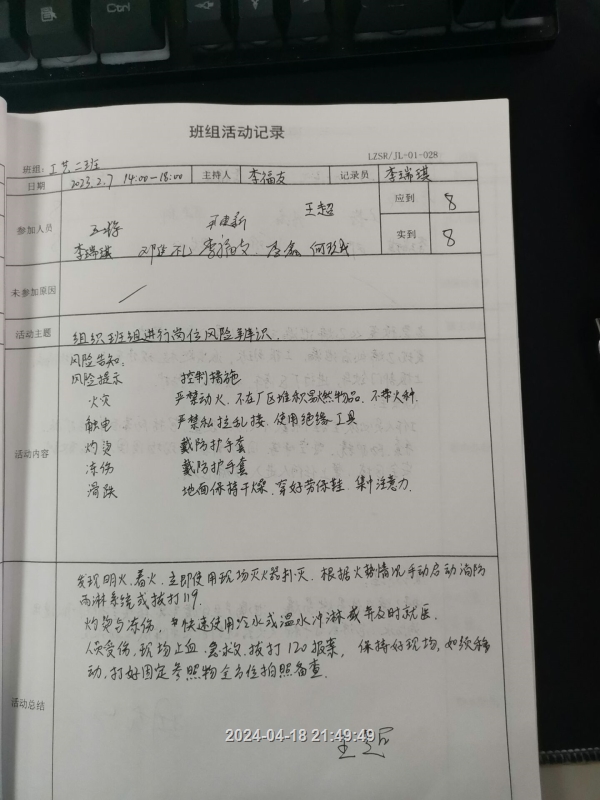 Ctrl
班组活动记录
LZSR/JL-01-028
班组: 工艺二班
日期 2023.2.7 14:00-18:00 主持人 李福友 记录员 李瑞琪
参加人员 应到 8
王超
李瑞琪 实到 8
未参加原因
活动主题 组织班组进行岗位风险辨识.
活动内容
风险告知:
风险提示 控制措施
火灾 严禁动火、不在厂区堆积易燃物品、不带火种.
触电 严禁私拉乱接、使用绝缘工具
灼烫 戴防护手套
冻伤 戴防护手套
滑跌 地面保持干燥、穿好劳保鞋 集中注意力.
活动总结
发现明火、着火、立即使用现场灭火器扑灭. 根据火势情况手动启动消防
雨淋系统或拔打119.
灼烫与冻伤, 快速使用冷水或温水冲淋 并及时就医.
人员受伤, 现场止血 急救, 拔打120报案, 保持好现场, 如须移
动, 打好固定参照物全方位拍照备查.
2024-04-18 21:49:49